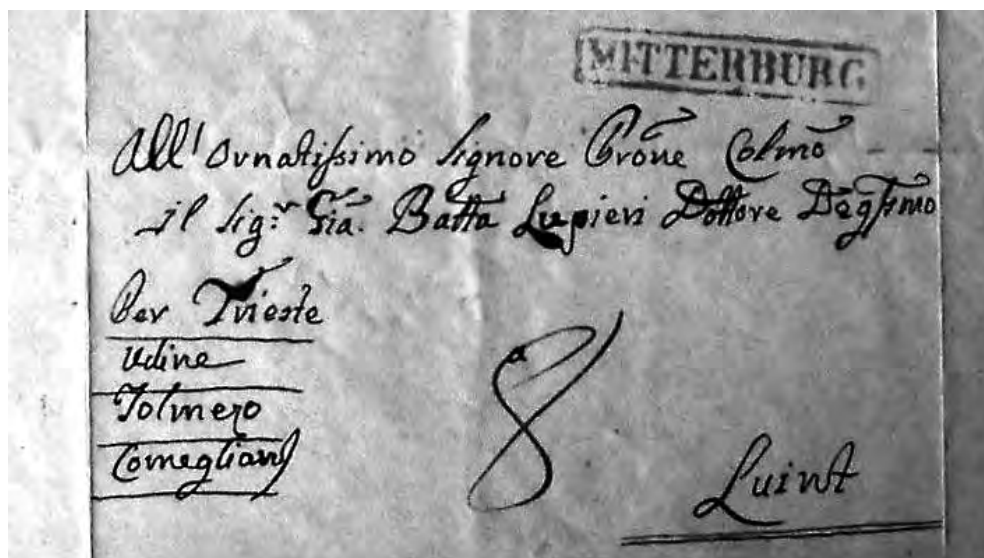 MITTERBURG
All' Ornatissimo Signore Prone Colmo
il Sig:r Gia. Batta Lupieri Dottore Degssmo
Per Trieste
Udine
Tolmezo
Comeglians
8
Luint